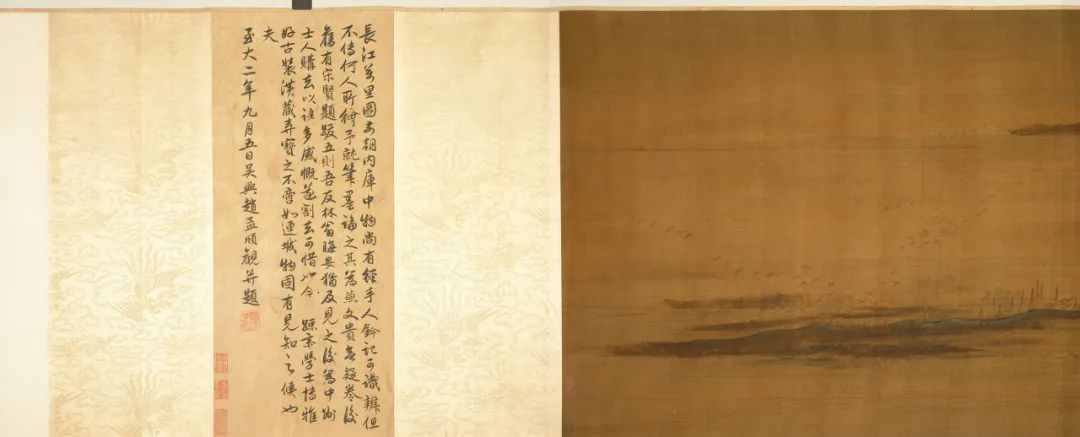 長江萬里圖前朝內庫中物尚有經手人鈐記可識辨但
不傳何人所繪予就筆墨論之其為燕文貴無疑卷後
舊有宋賢題跋五則吾友林翁晦叟猶及見之後為中州
士人購去以語多感慨遂割去可惜也今 縣宰學士博雅
好古裝潢藏弆寶之不啻如連城物固有見知之候也
夫
至大二年九月五日吳興趙孟頫觀並題